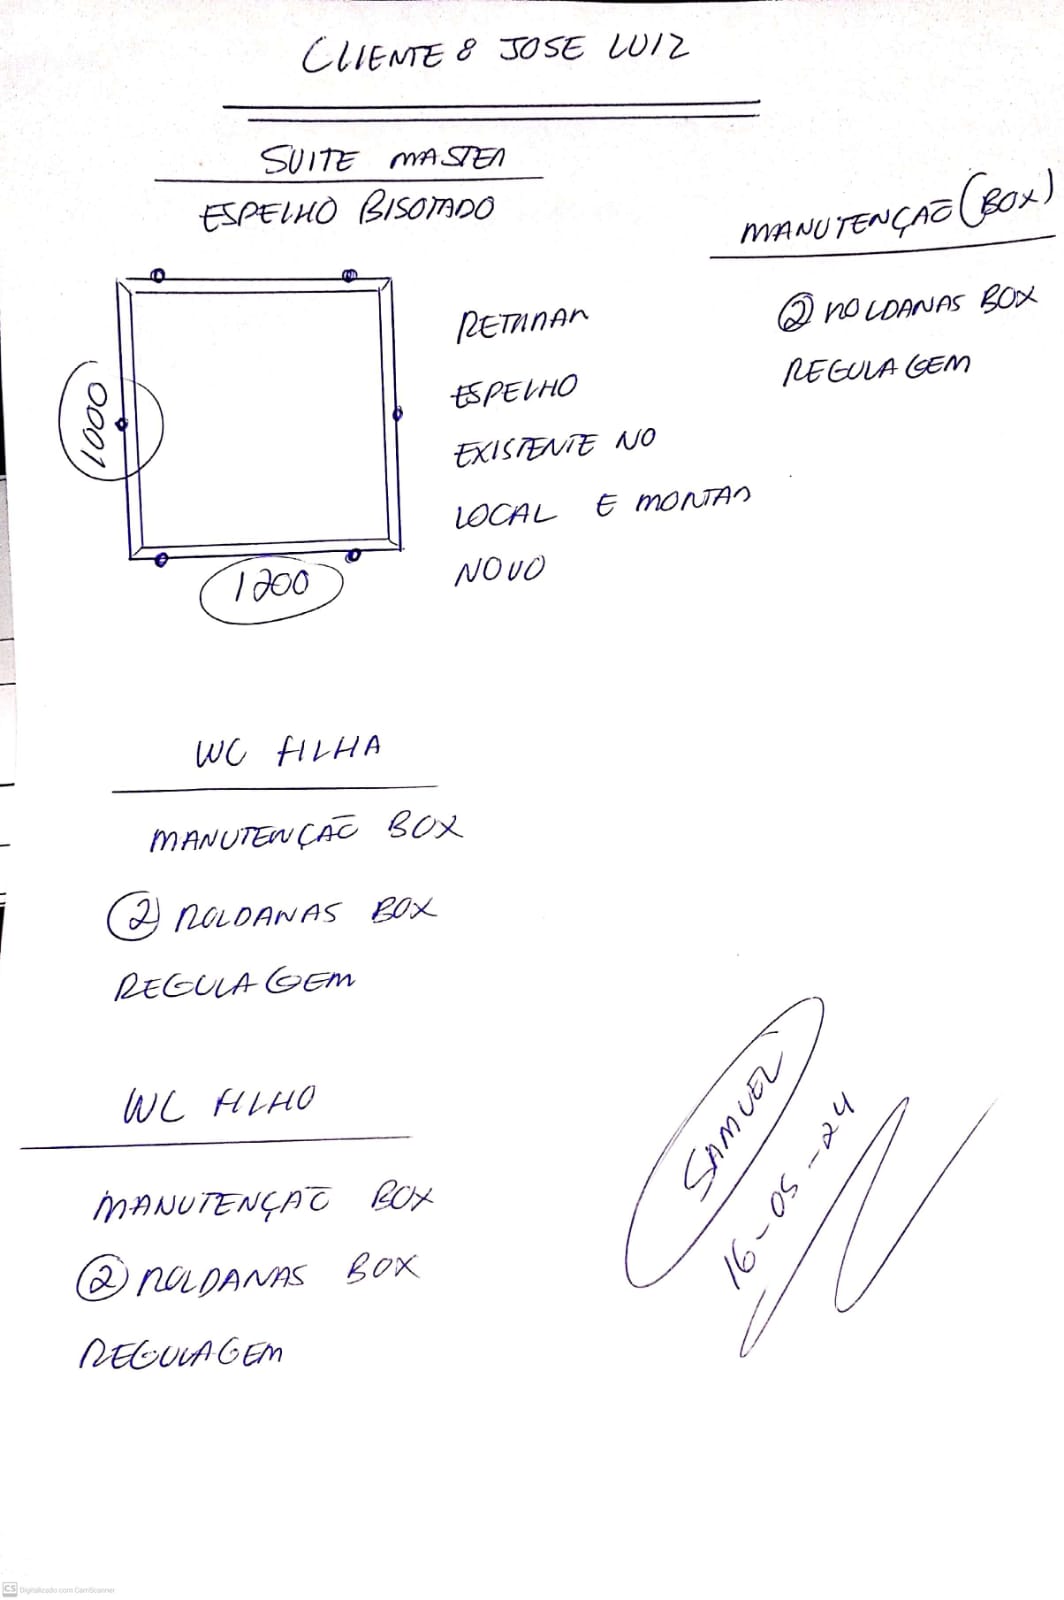 CLIENTE: JOSE LUIZ
SUITE MASTER
ESPELHO BISOTADO
1000
1200
RETIRAR
ESPELHO
EXISTENTE NO
LOCAL E MONTAR
NOVO
MANUTENÇÃO (BOX)
2 ROLDANAS BOX
REGULAGEM
WC FILHA
MANUTENÇÃO BOX
2 ROLDANAS BOX
REGULAGEM
WC FILHO
MANUTENÇÃO BOX
2 ROLDANAS BOX
REGULAGEM
SAMUEL
16-05-24
CS Digitalizado com CamScanner